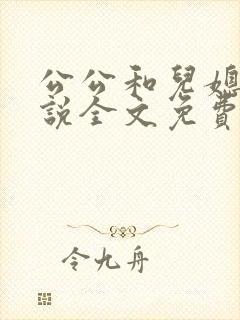 公公和兒媳
說全文免費
令九舟